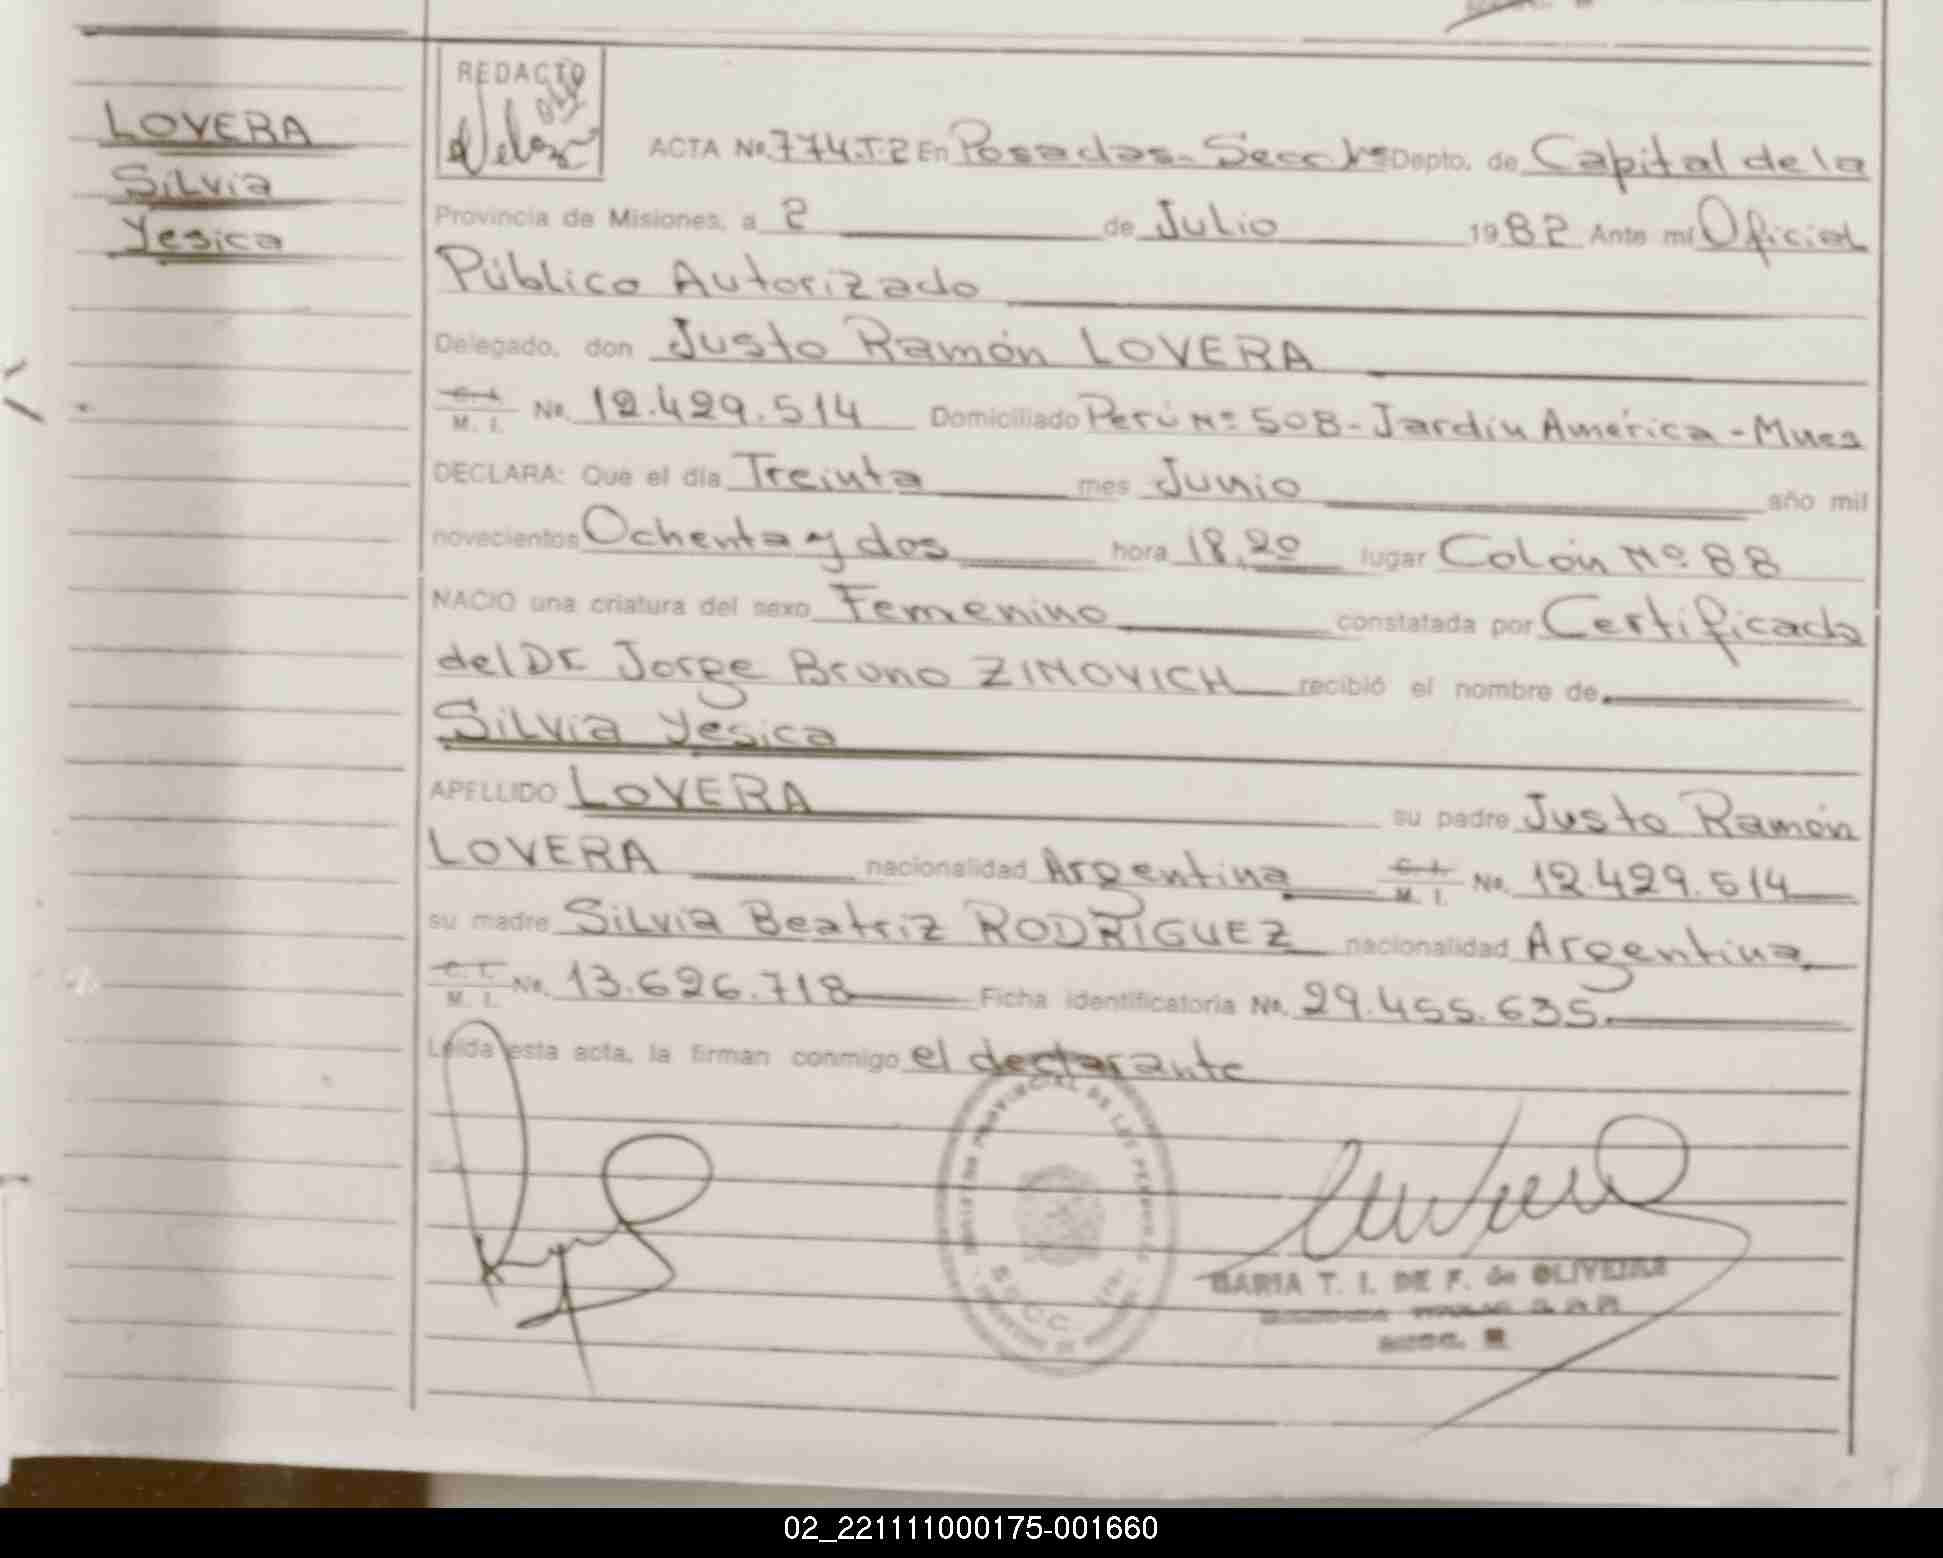 LOVERA
Silvia
Yesica
REDACTO
ACTA No. 774.T.2 En Posadas- Secc 1º Depto. de Capital de la
Provincia de Misiones, a 2 de Julio 1982 Ante mí Oficial
Público Autorizado
Delegado, don Justo Ramón LOVERA
C. I. M. I. No. 12.429.514 Domiciliado Perú Nº 508 - Jardín América - Mnes
DECLARA: Que el día Treinta mes Junio año mil
novecientos Ochenta y dos hora 18,20 lugar Colón Nº 88
NACIO una criatura del sexo Femenino constatada por Certificado
del Dr Jorge Bruno ZIMOVICH recibió el nombre de
Silvia Yesica
APELLIDO LOVERA su padre Justo Ramón
LOVERA nacionalidad Argentina C. I. M. I. No. 12.429.514
su madre Silvia Beatriz RODRIGUEZ nacionalidad Argentina
C. I. M. I. No. 13.626.718 Ficha identificatoria No. 29.455.635.
Leída esta acta, la firman conmigo el declarante
PROVINCIAL DE LAS PERSONAS
SECC
MARIA T. I. DE F. de OLIVEIRA
02_221111000175-001660